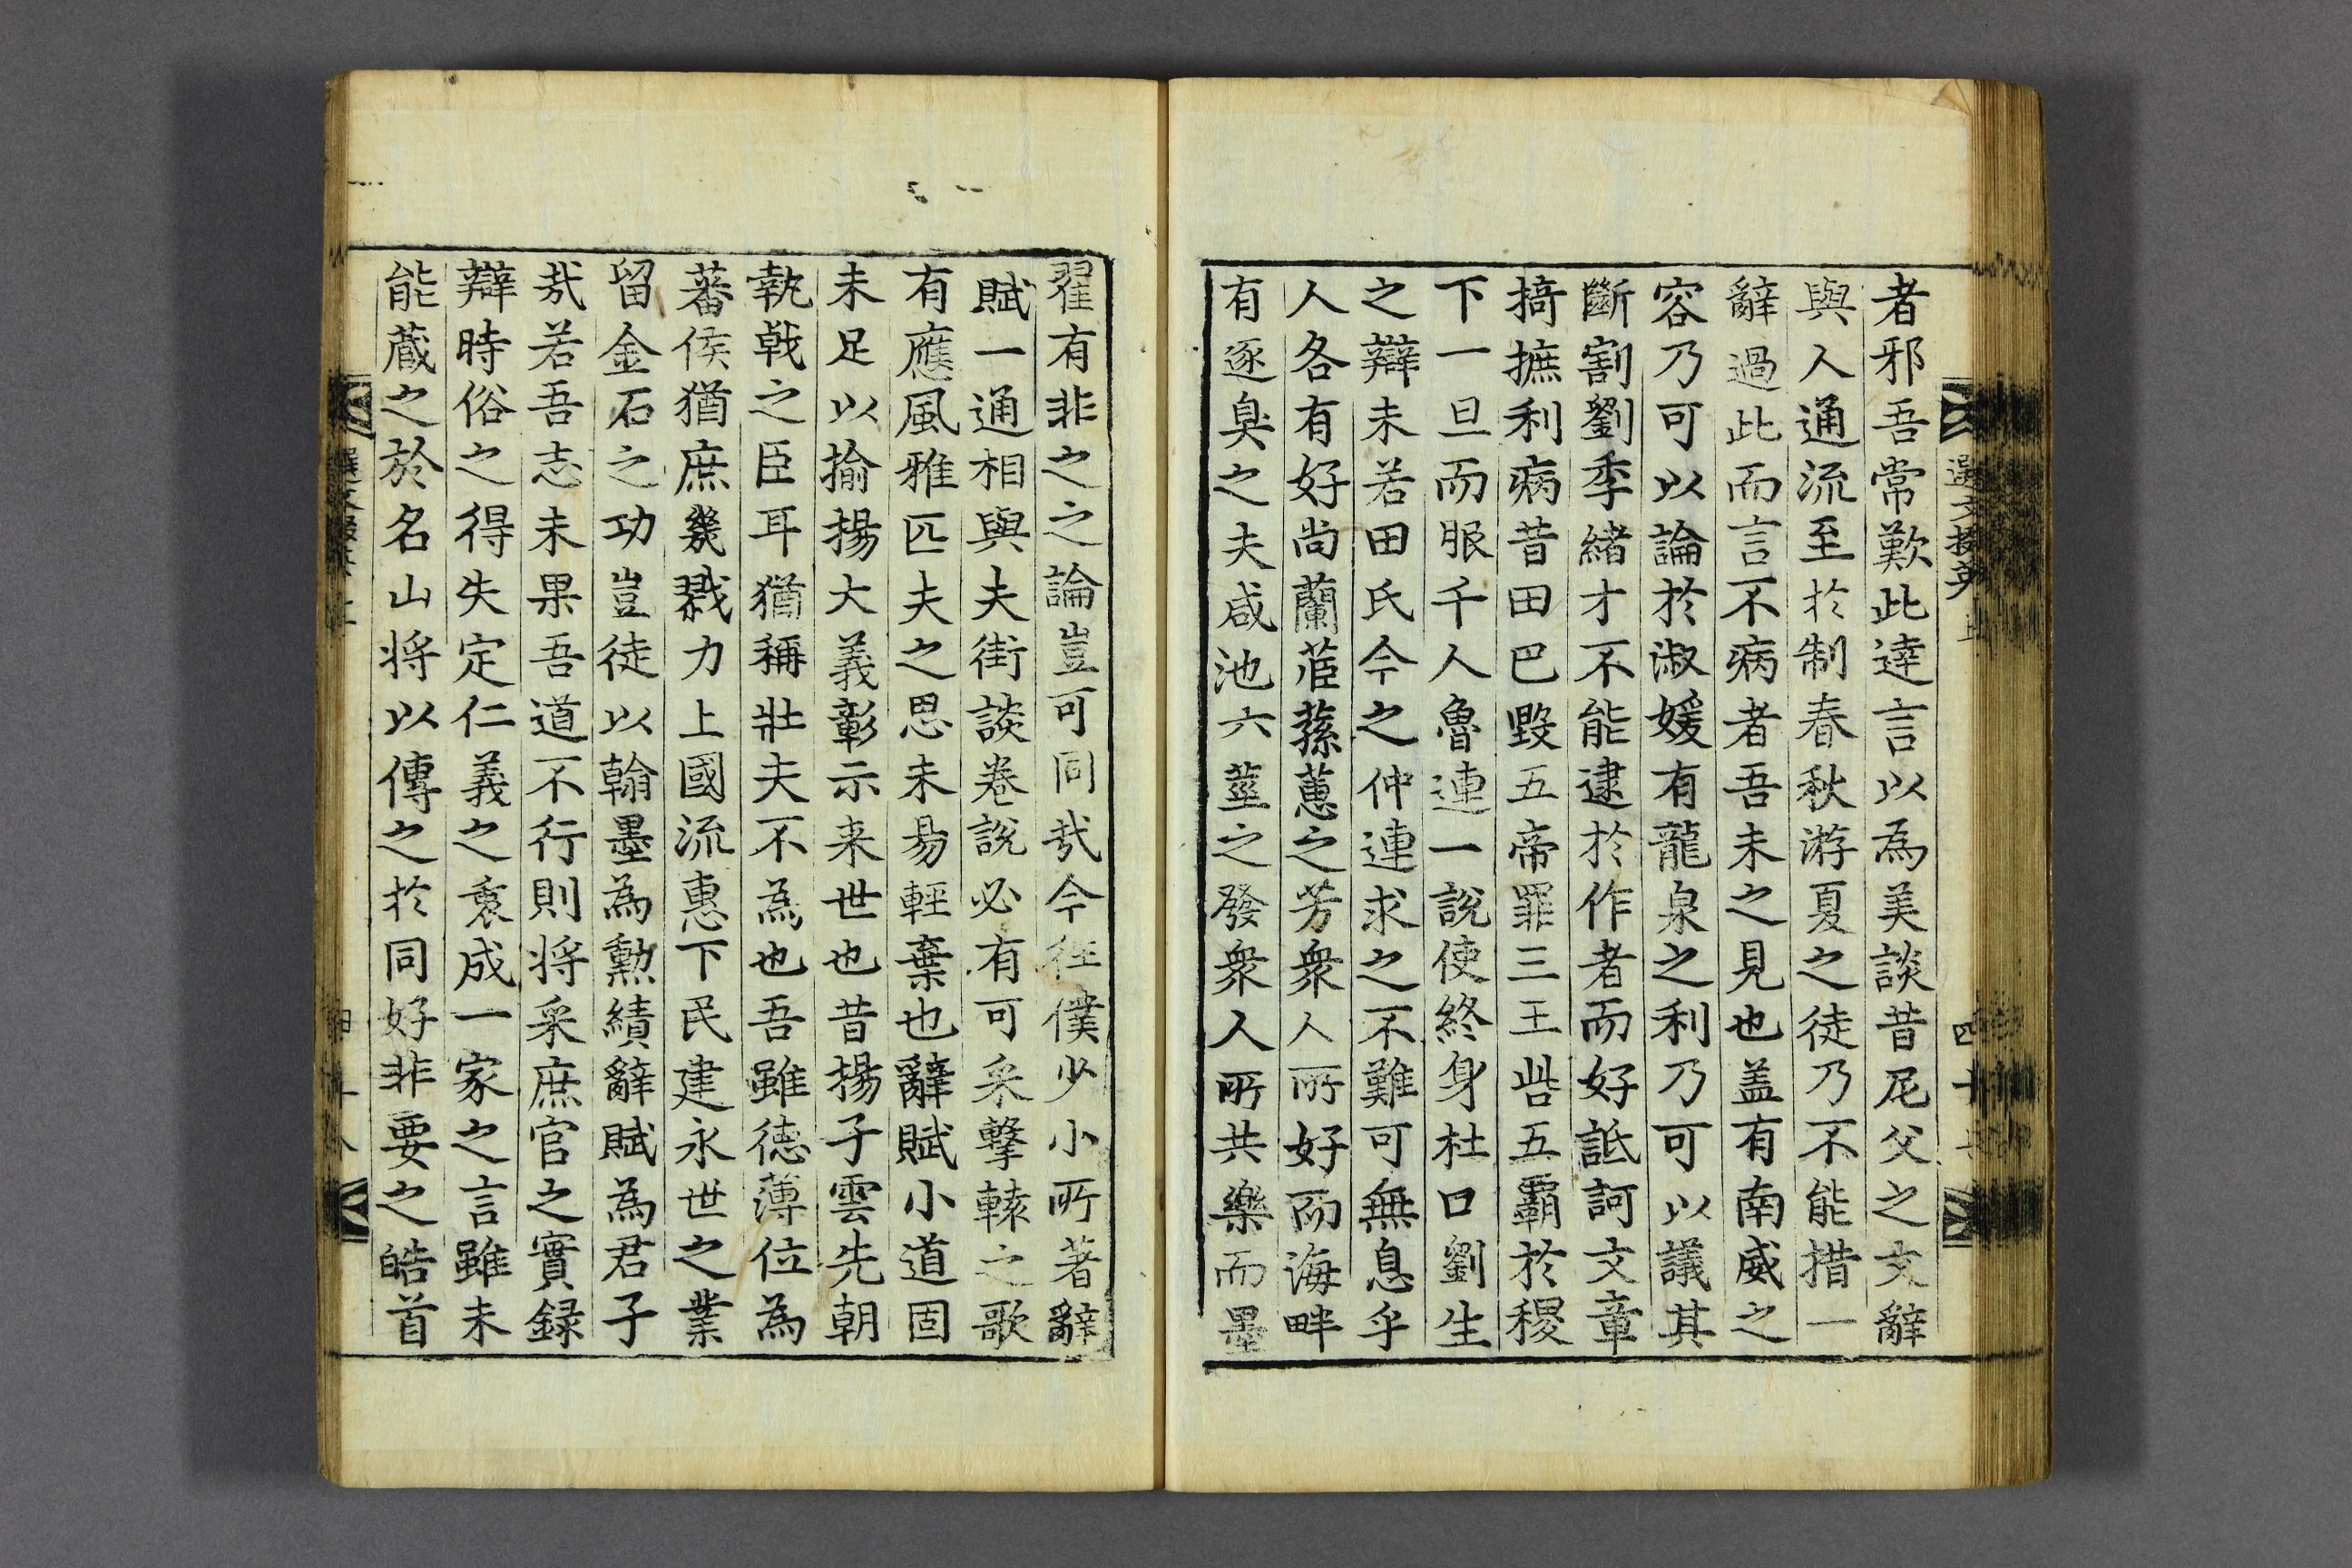 者邪吾常歎此達言以為美談昔尼父之文辭
與人通流至於制春秋游夏之徒乃不能措一
辭過此而言不病者吾未之見也盖有南威之
容乃可以論於淑媛有龍泉之利乃可以議其
斷割劉季緒才不能逮於作者而好詆訶文章
掎摭利病昔田巴毀五帝罪三王呰五霸於稷
下一旦而服千人魯連一說使終身杜口劉生
之辯未若田氏今之仲連求之不難可無息乎
人各有好尚蘭茝蓀蕙之芳衆人所好而海畔
有逐臭之夫咸池六莖之發衆人所共樂而墨
翟有非之之論豈可同㢤今徃僕少小所著辭
賦一通相與夫街談巷說必有可采擊轅之歌
有應風雅匹夫之思未易輕棄也辭賦小道固
未足以揄揚大義彰示来世也昔揚子雲先朝
執戟之臣耳猶稱壯夫不為也吾雖德薄位為
蕃侯猶庶幾戮力上國流惠下民建永世之業
留金石之功豈徒以翰墨為勲績辭賦為君子
㢤若吾志未果吾道不行則将采庶官之實録
辯時俗之得失定仁義之衷成一家之言雖未
能蔵之於名山将以傳之於同好非要之皓首